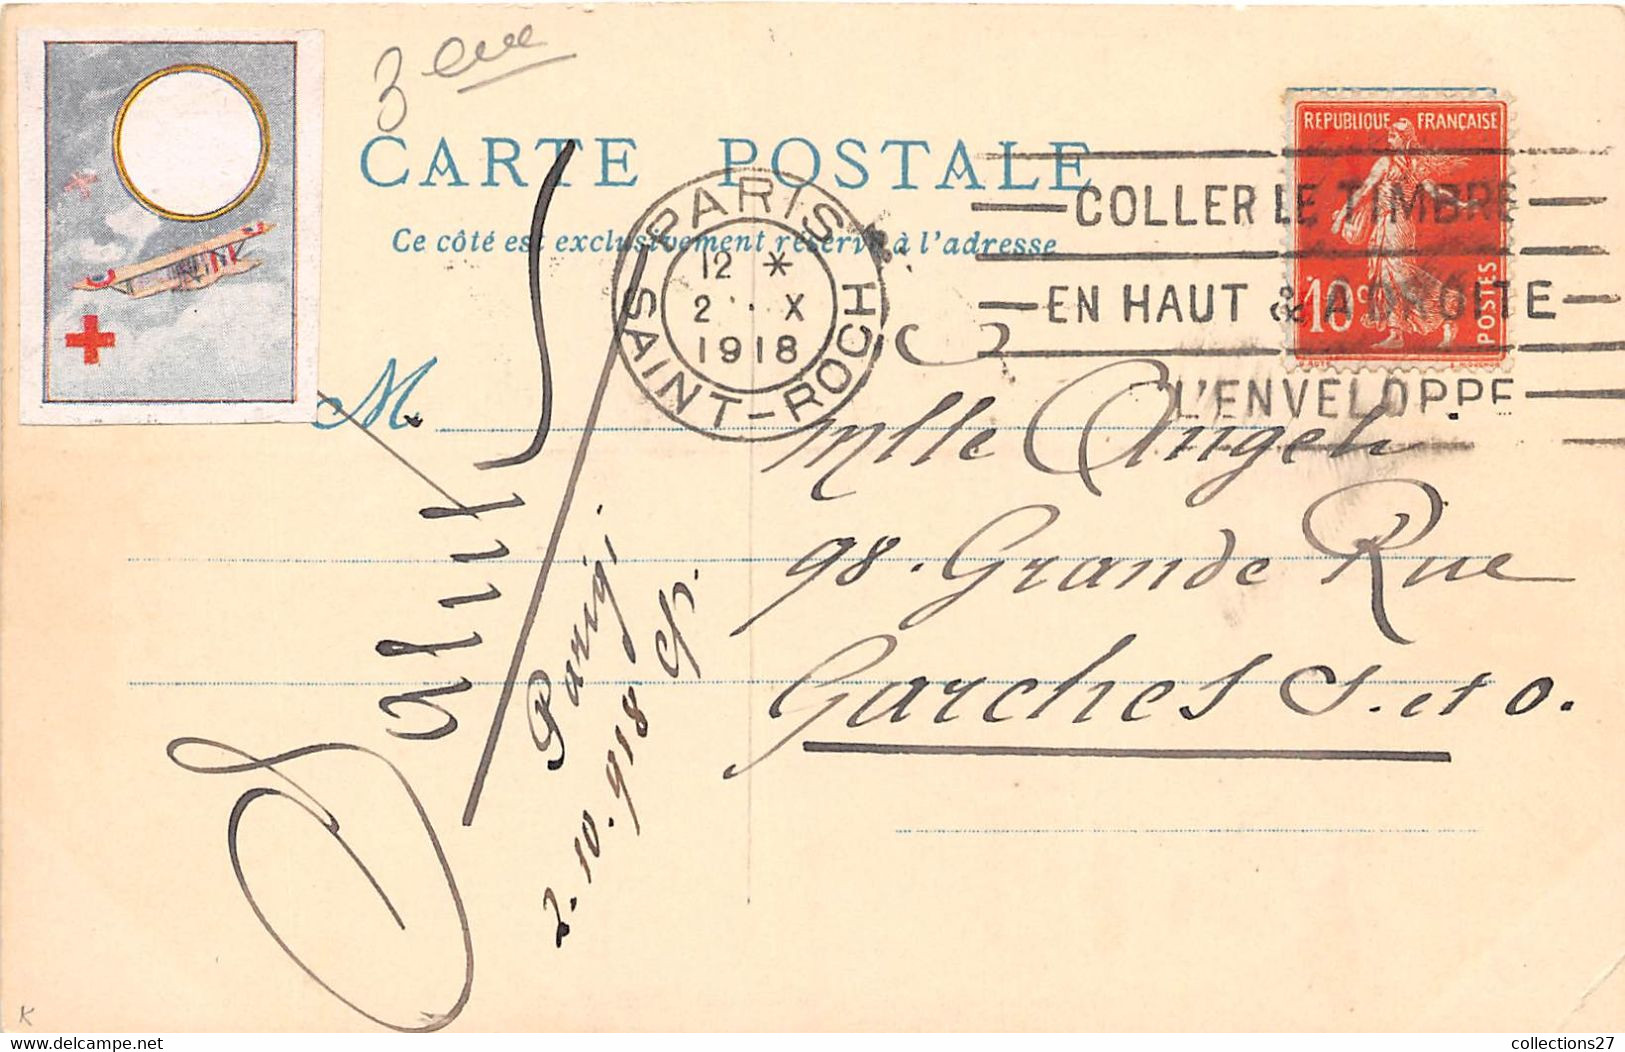 3eme
CARTE POSTALE
Ce côté est exclusivement réservé à l'adresse
M.
PARIS
12 *
2 · X
1918
SAINT-ROCH
COLLER LE TIMBRE
EN HAUT & A DROITE
L'ENVELOPPE
REPUBLIQUE FRANÇAISE
10c
POSTES
Mlle Angeli
98. Grande Rue
Garches S. et O.
Parigi
2. 10. 918
K
collections27